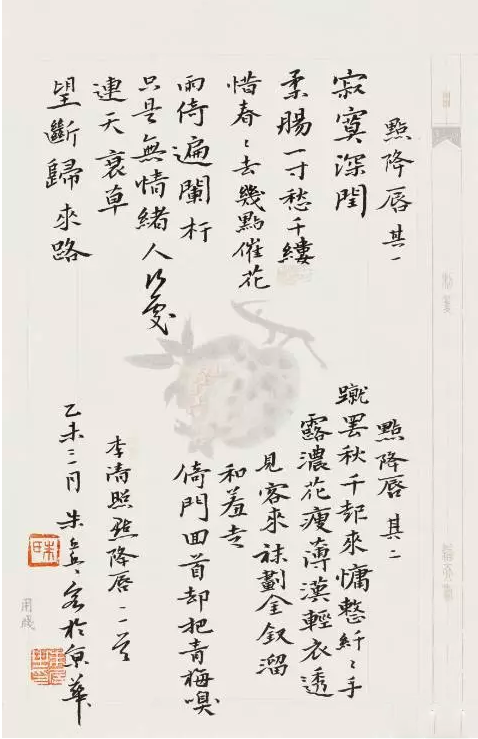 點降唇 其一
寂寞深閨
柔腸一寸愁千縷
惜春〻去幾點催花
雨倚遍闌杆
只是無情緒人何處
連天衰草
望斷歸來路
點降唇 其二
蹴罷秋千起來慵整纤〻手
露濃花瘦薄漢輕衣透
見客來袜剗金釵溜
和羞走
倚門回首却把青梅嗅
李清照點降唇二首
乙未三月 朱 客於京華